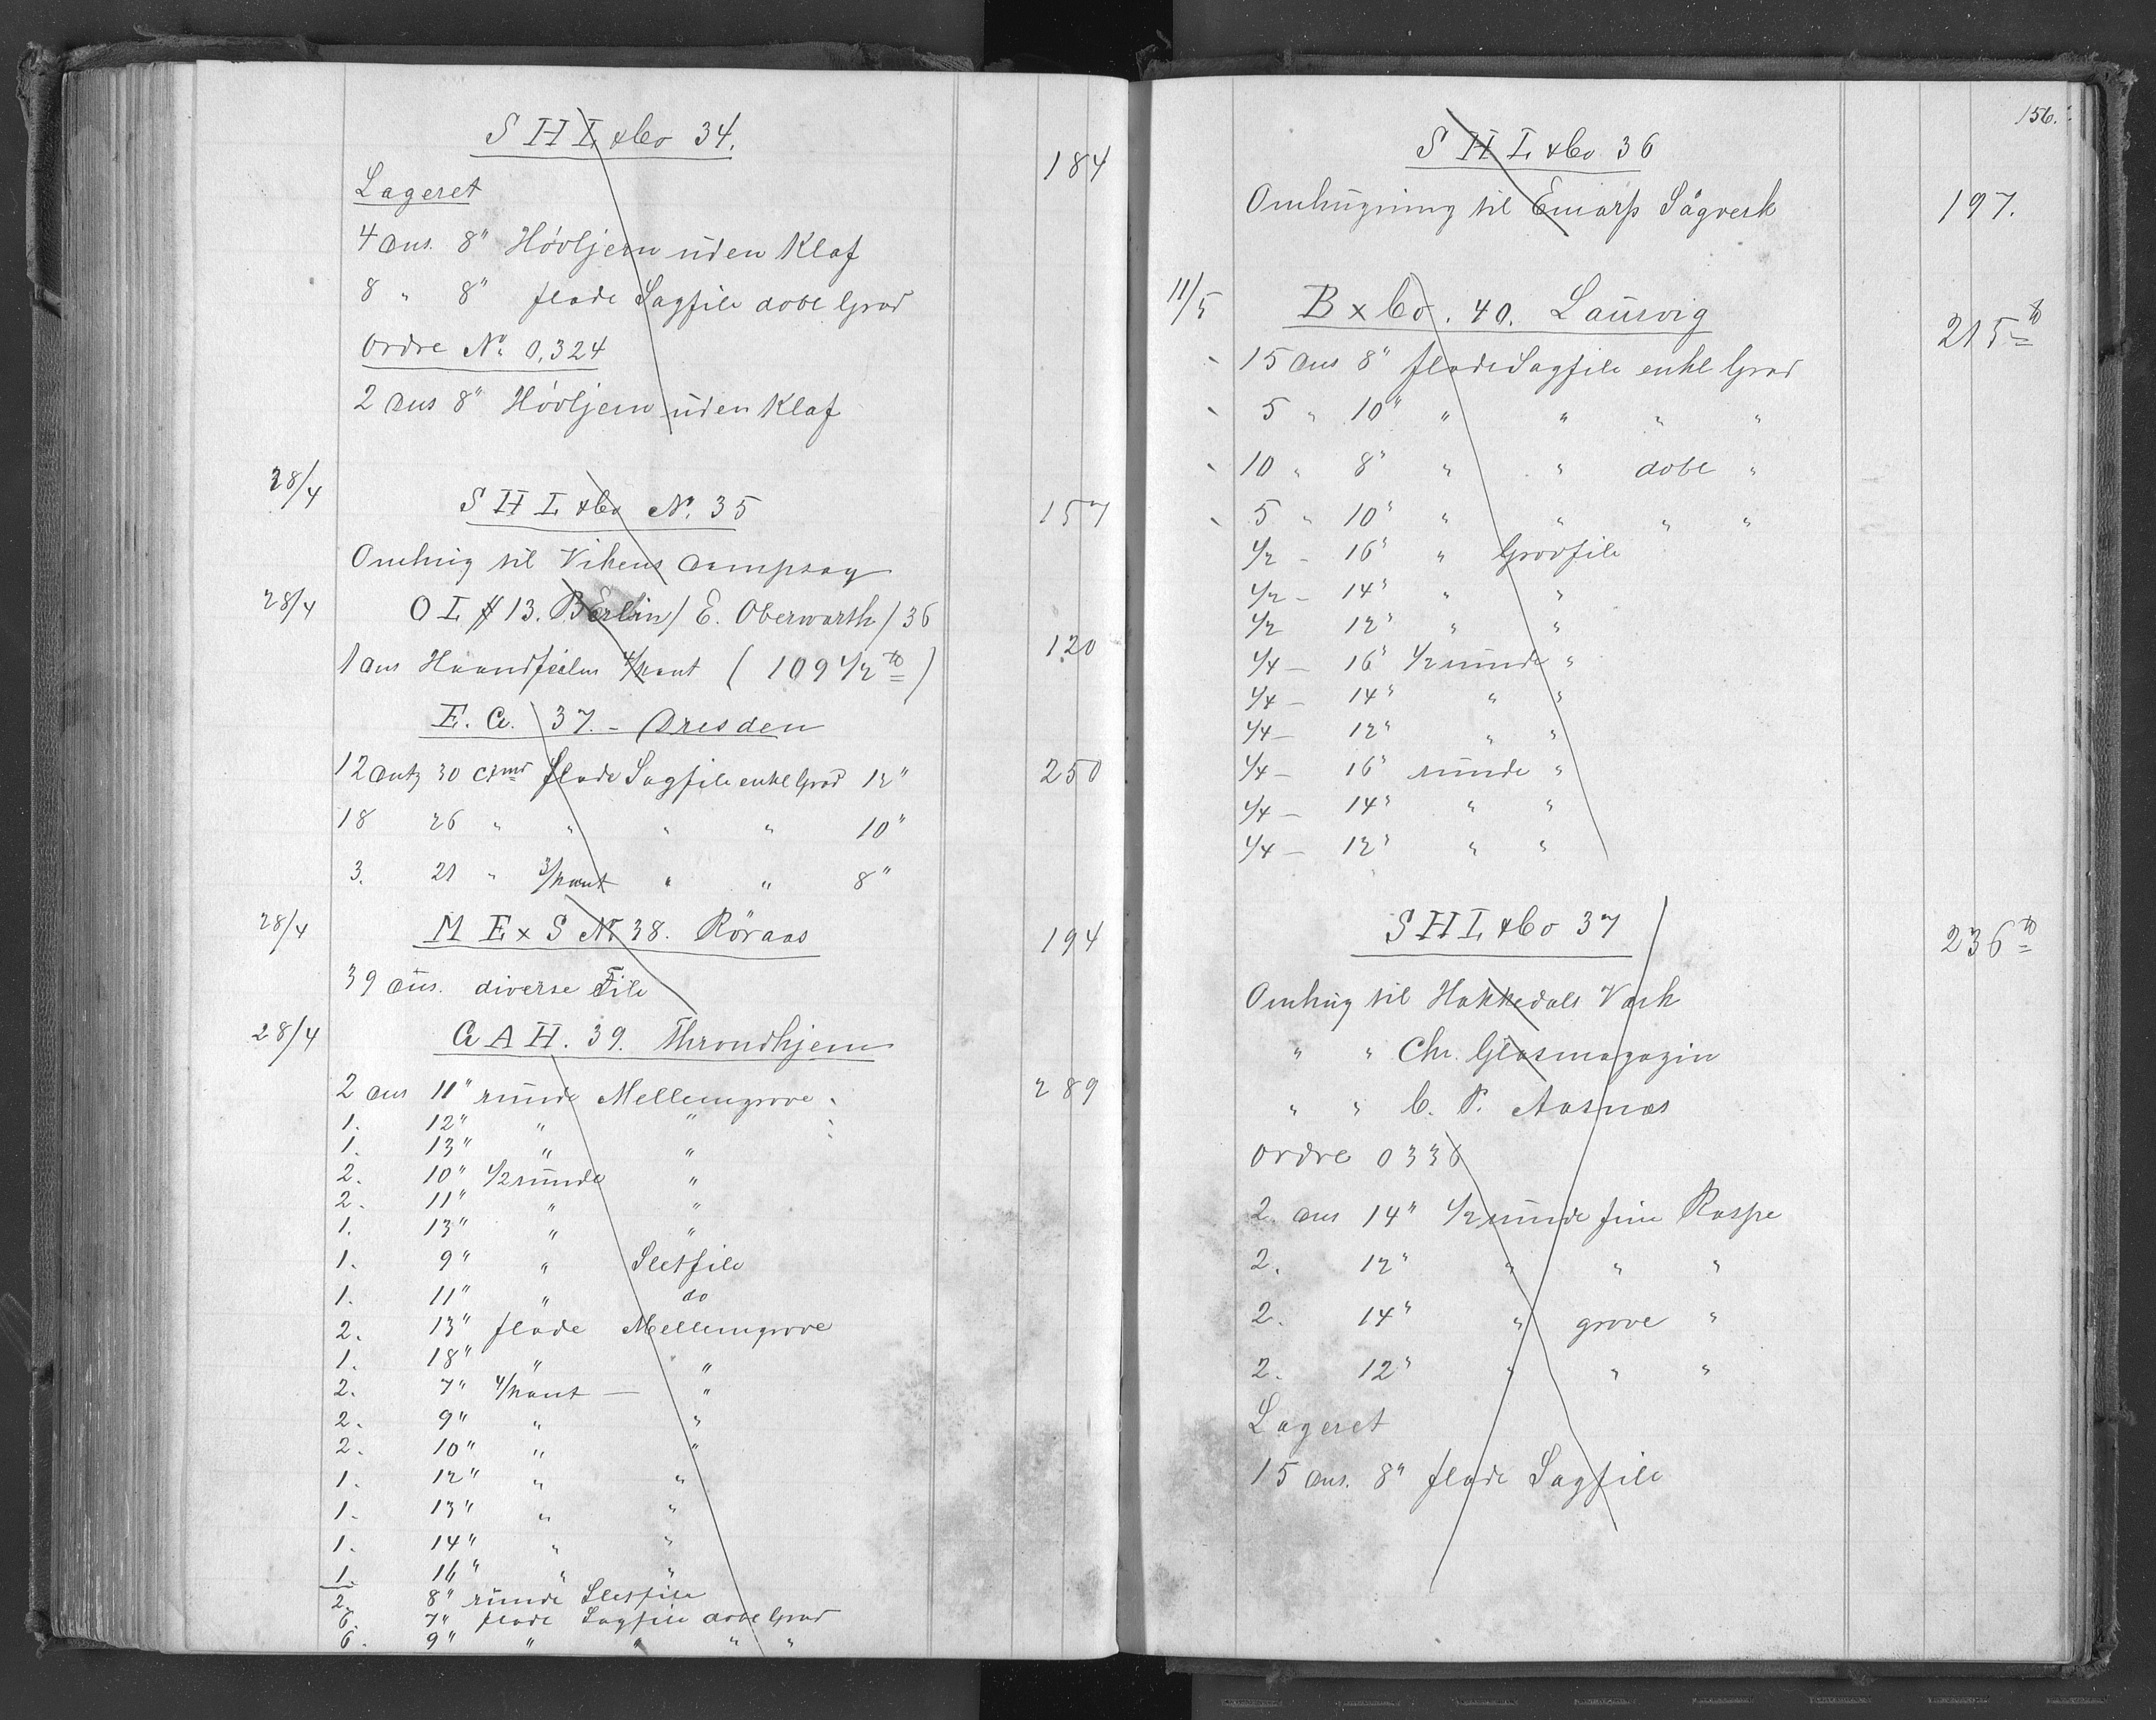 S H L & Co 34.
184
Lageret
4 Dus. 8" Høvljern uden Klaf
8 " 8" flade Sagfile dobl Grad
Ordre No. 0,324
2 Dus 8" Høvljern uden Klaf
28/4
S H L & Co No. 35
157
Omhug til Vikens Dampsag
28/4
O L # 13. Berlin / E. Oberwarth / 36
120
1 Dus Haandfiler 4/kant ( 109 1/2 ℔ )
E. G. 37. - Dresden
12 Dutz 30 ctmr flade Sagfile enkl Grad 12"
250
18 26 " " " " 10"
3. 21 " 3/kant " " 8"
28/4
M E x S No 38. Röraas
194
39 Dus. diverse File
28/4
G A H. 39. Throndhjem
2 Dus 11" runde Mellemgrove
289
1. 12" " "
1. 13" " "
2. 10" 1/2 runde "
2. 11" " "
1. 13" " "
1. 9" " Sletfile
1. 11" " do
2. 13" flade Mellemgrove
1. 18" " "
2. 7" 4/kant — "
2. 9" " "
2. 10" " "
1. 12" " "
1. 13" " "
1. 14" " "
1. 16" " "
2. 8" runde Sletfile
6. 7" flade Sagfile dobl Grad
6. 9" " " " "
156.
S H L & Co 36
Omhugning til Emarp Sågverk
197.
11/5
B x Co. 40. Laurvig
215 ℔
15 Dus 8" flade Sagfile enkl Grad
5 " 10" " " " "
10 " 8" " " dobl "
5 " 10" " " " "
1/2 - 16" " Grovfile
1/2 - 14" " "
1/2 12" " "
1/4 - 16" 1/2 runde "
1/4 - 14" " "
1/4 - 12" " "
1/4 - 16" runde "
1/4 - 14" " "
1/4 - 12" " "
S H L & Co 37
236 ℔
Omhug til Hakkedals Værk
" " Chr. Glasmagazin
" " C. P. Aasnæs
Ordre 0336
2. Dus 14" 1/2 runde fine Raspe
2. 12" " " "
2. 14" " grove "
2. 12" " " "
Lageret
15 Dus. 8" flade Sagfile